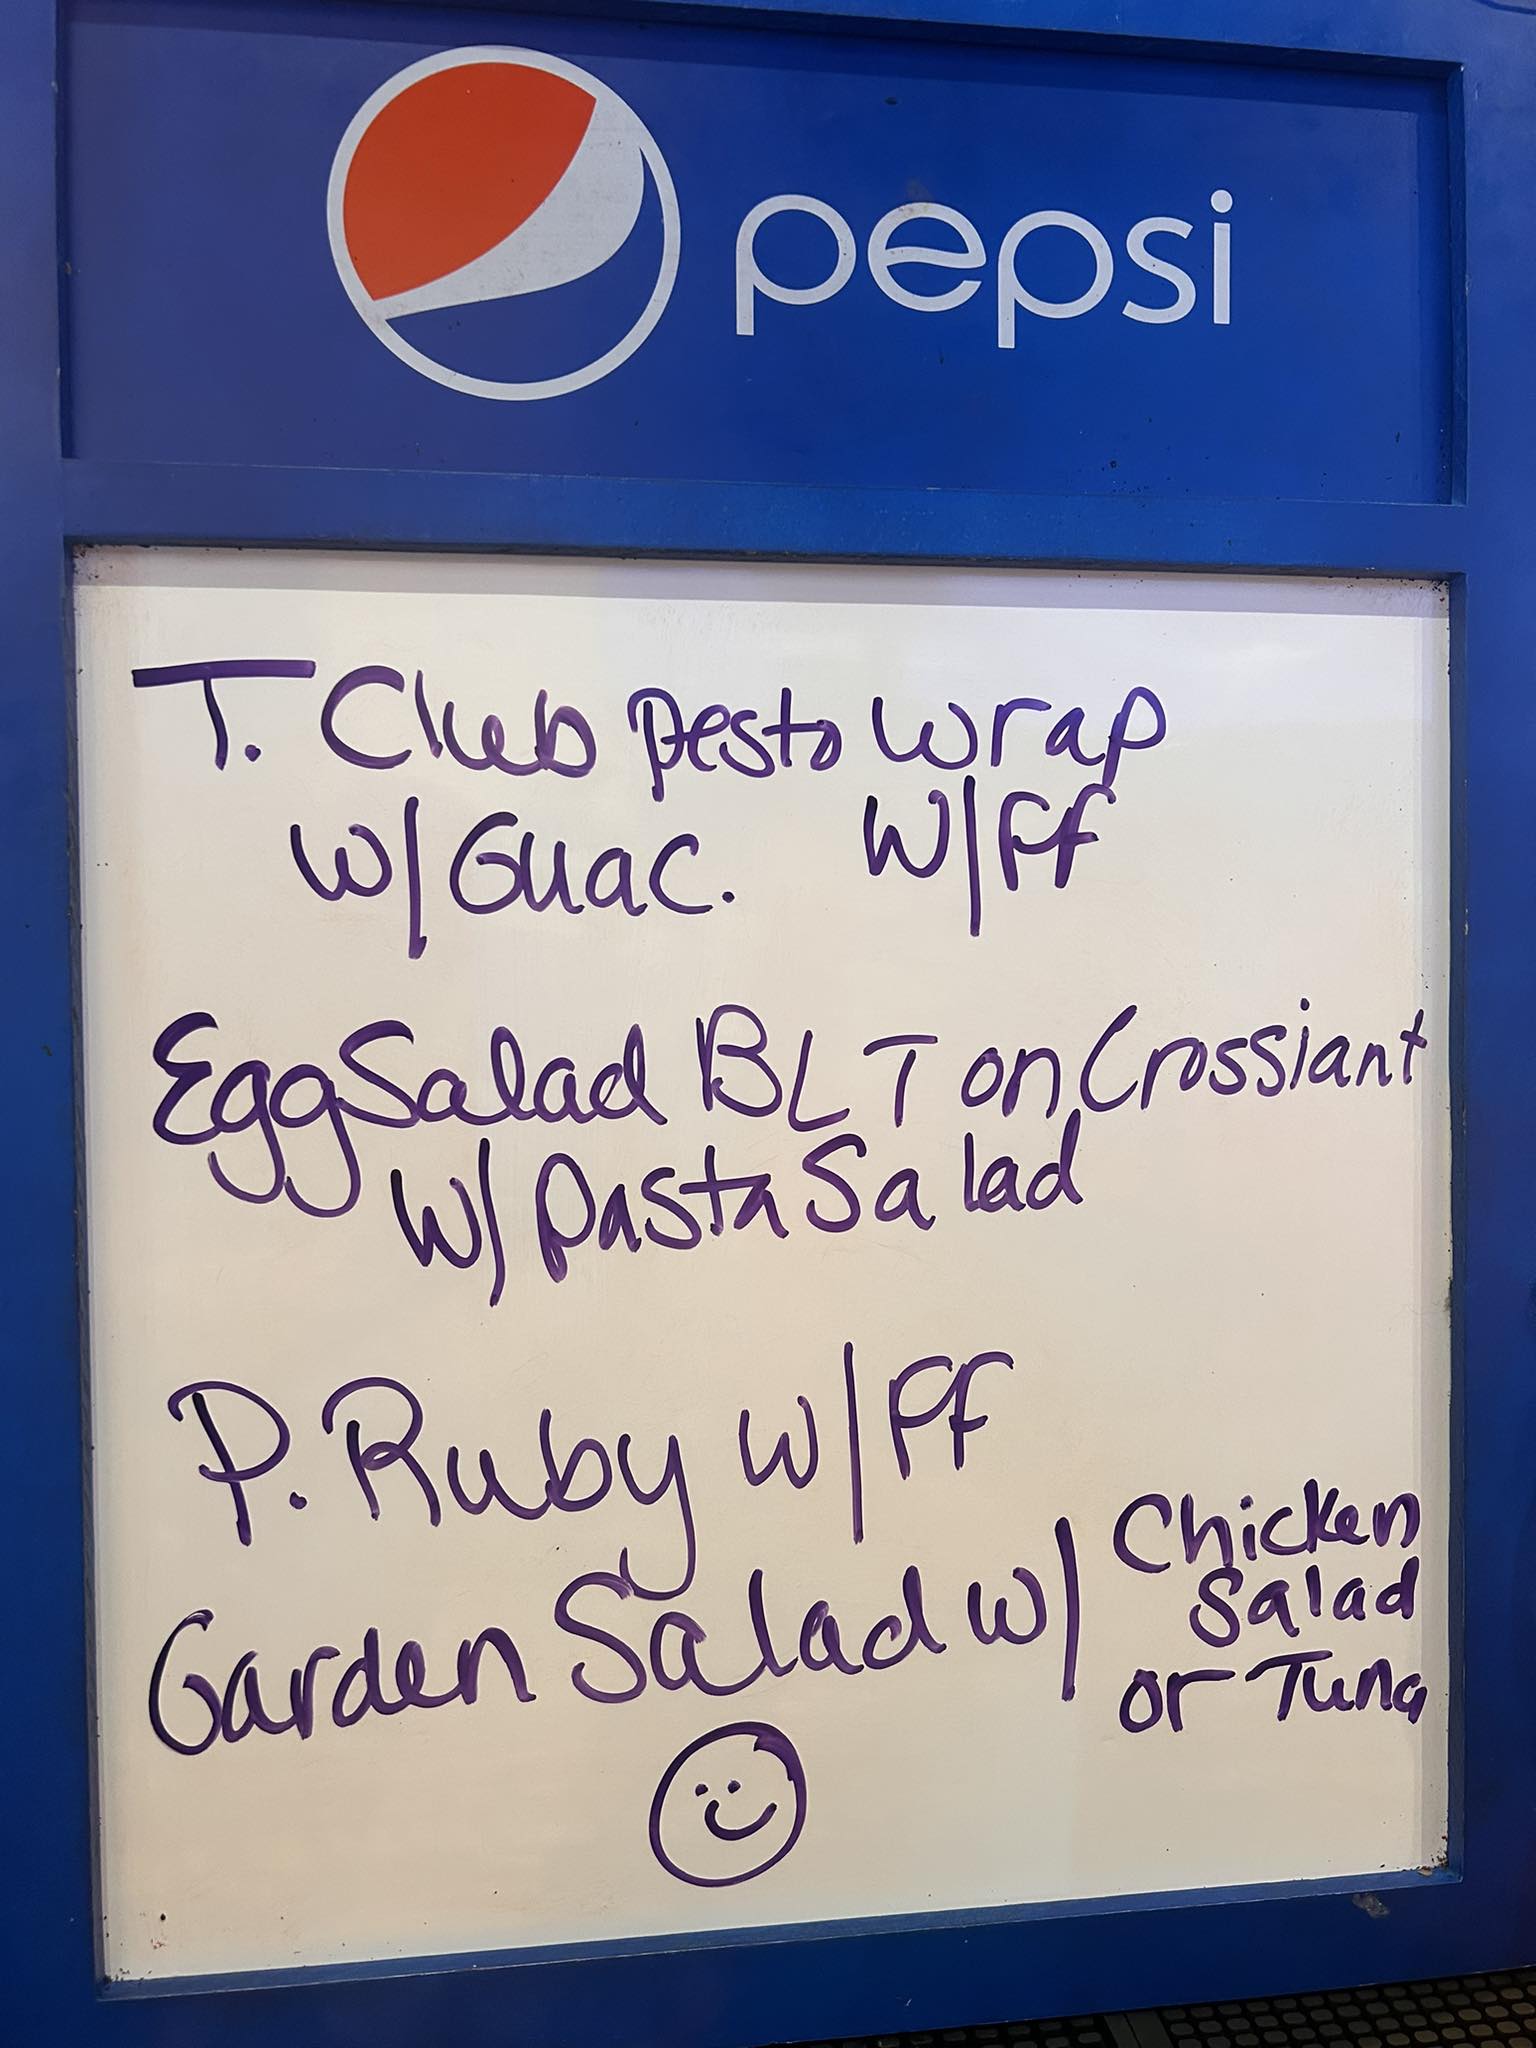 pepsi
T. Club pesto wrap
w/Guac. w/ff
Egg Salad BLT on Crossiant
w/ pasta Salad
P. Ruby w/ff
Garden Salad w/ Chicken
Salad
or Tuna